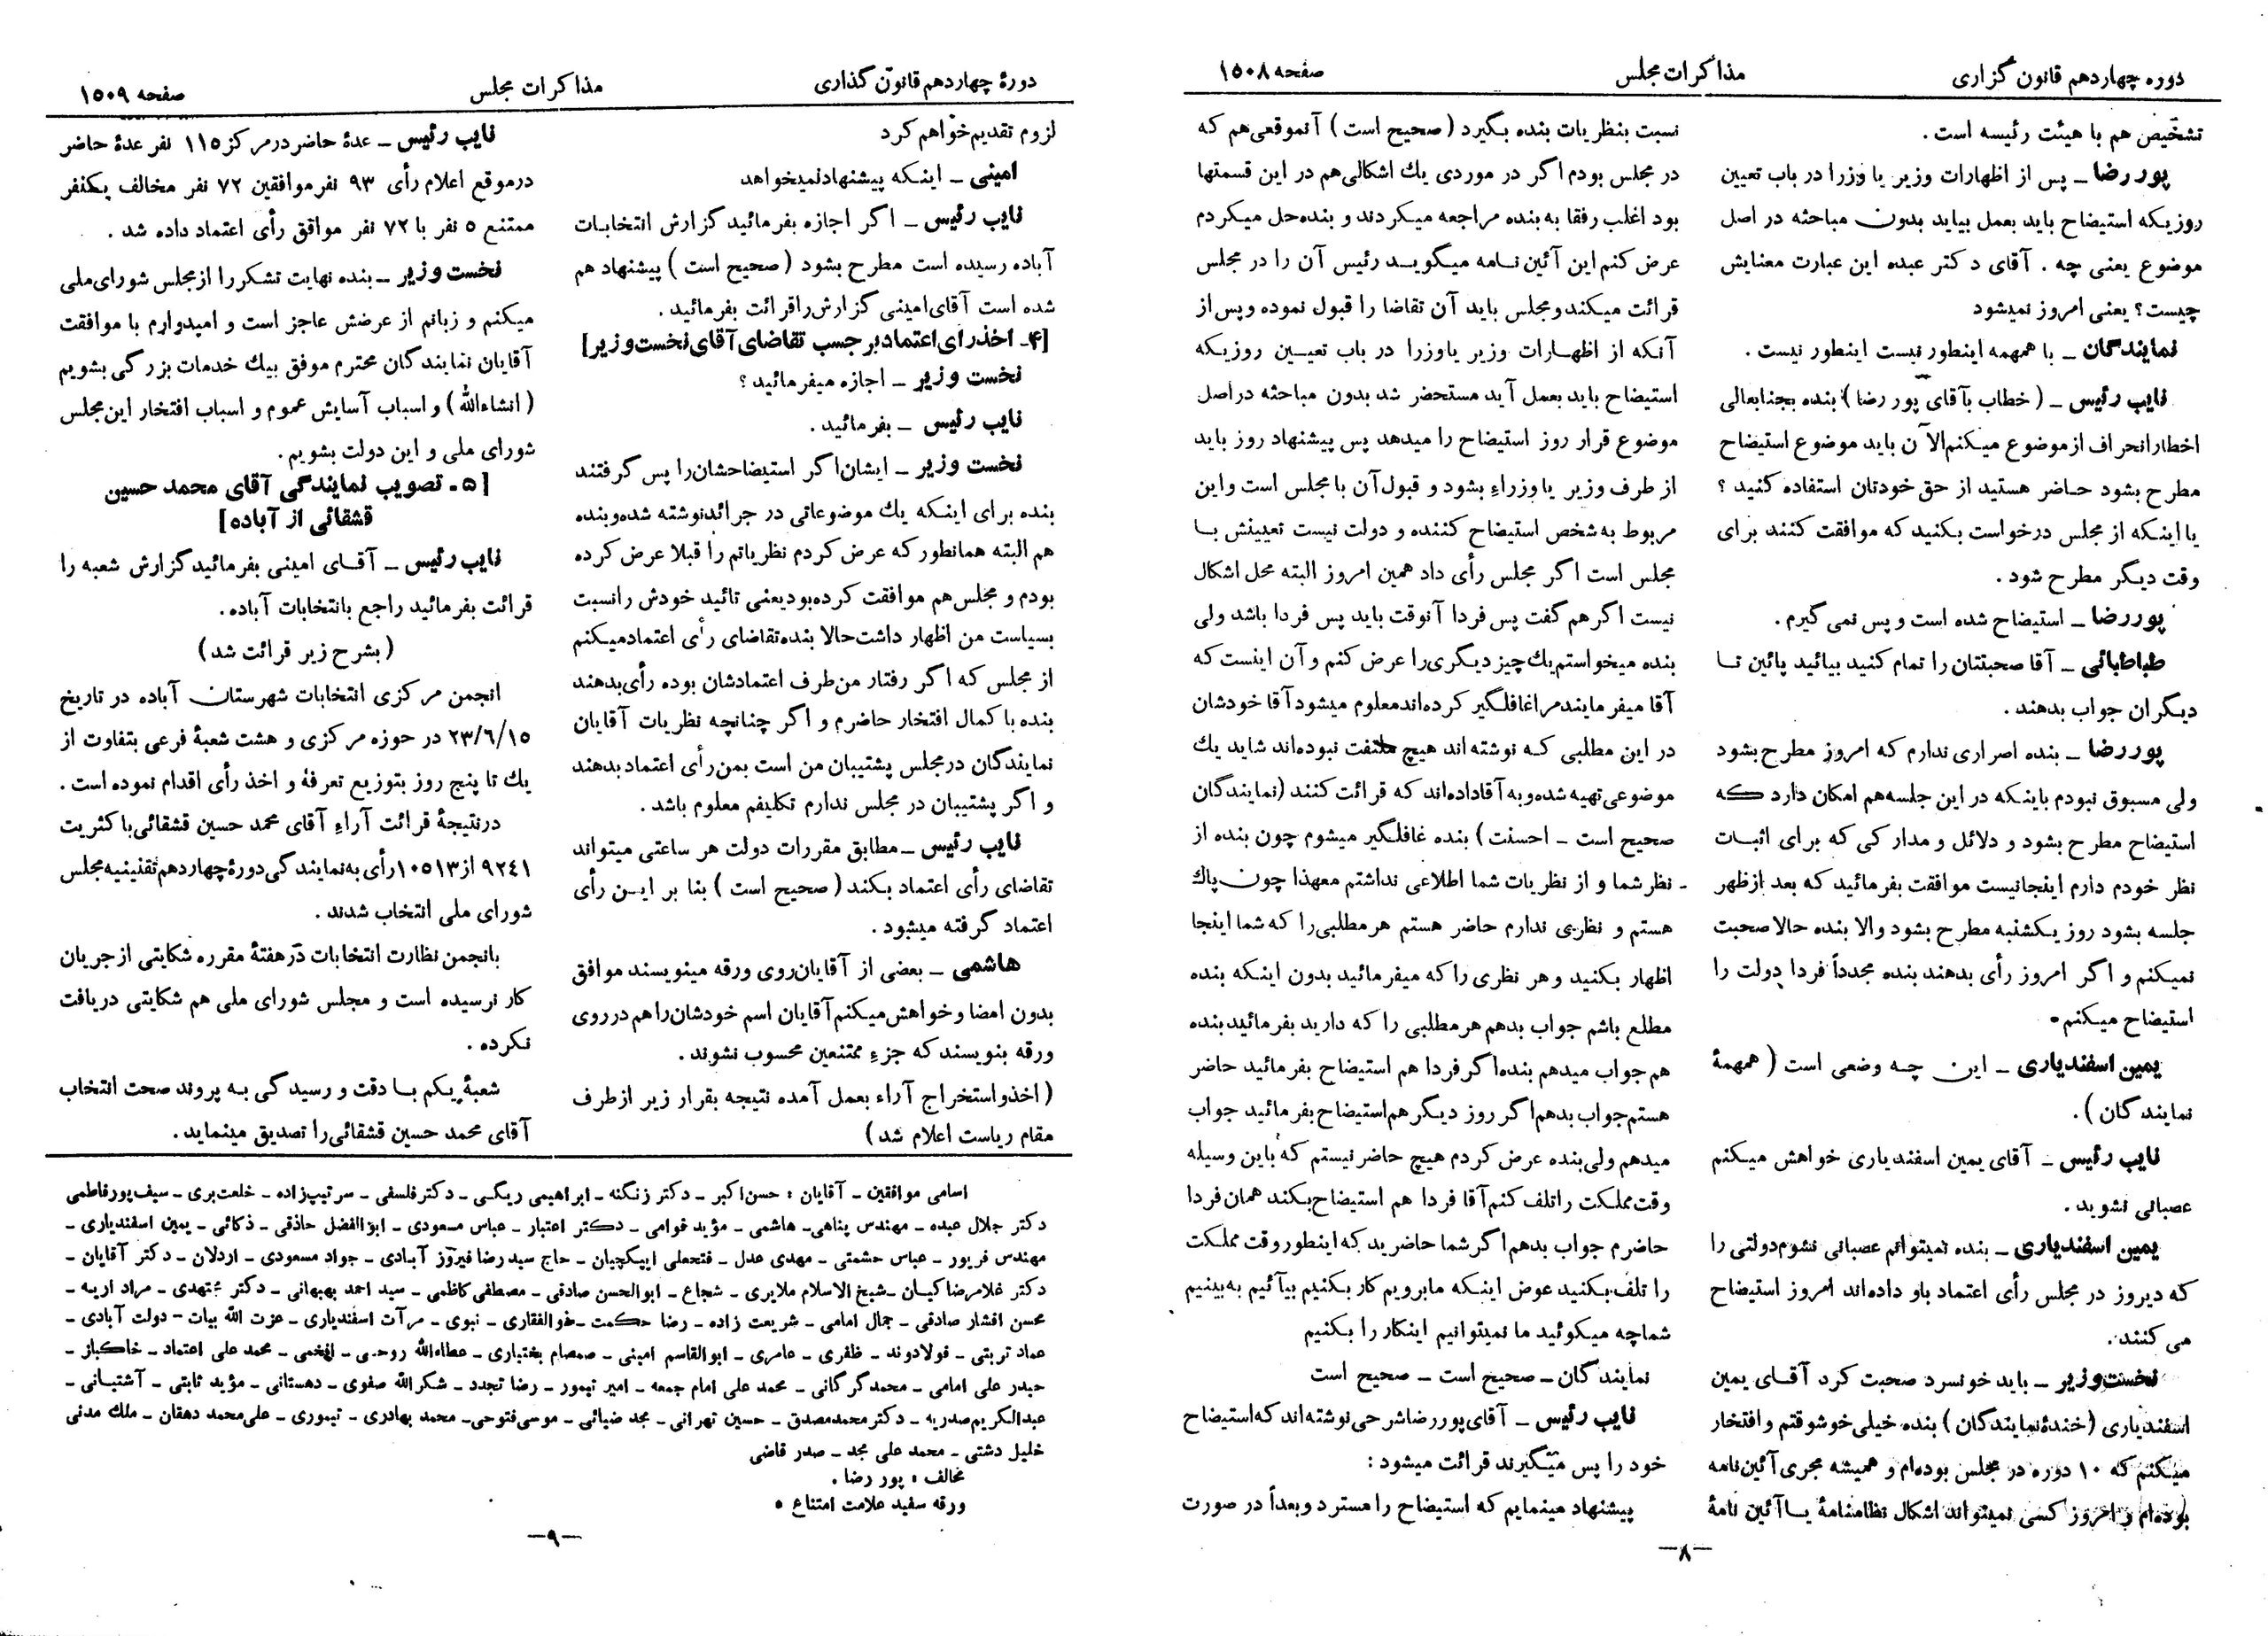 دوره چهاردهم قانون گزاری
مذاکرات مجلس
صفحه ۱۵۰۸
تشخیص هم با هیئت رئیسه است .
پوررضا ـ پس از اظهارات وزیر یا وزرا در باب تعیین
روزیکه استیضاح باید بعمل بیاید بدون مباحثه در اصل
موضوع یعنی چه . آقای دکتر عبده این عبارت معنایش
چیست؟ یعنی امروز نمیشود
نمایندگان ـ با همهمه اینطور نیست اینطور نیست .
نایب رئیس ـ ( خطاب بآقای پور رضا ) بنده بجنابعالی
اخطار انحراف از موضوع میکنم الآن باید موضوع استیضاح
مطرح بشود حاضر هستید از حق خودتان استفاده کنید ؟
یا اینکه از مجلس درخواست بکنید که موافقت کنند برای
وقت دیگر مطرح شود .
پوررضا ـ استیضاح شده است و پس نمی گیرم .
طباطبائی ـ آقا صحبتتان را تمام کنید بیائید پائین تا
دیگران جواب بدهند .
پوررضا ـ بنده اصراری ندارم که امروز مطرح بشود
ولی مسبوق نبودم باینکه در این جلسه هم امکان دارد که
استیضاح مطرح بشود و دلائل و مدارکی که برای اثبات
نظر خودم دارم اینجا نیست موافقت بفرمائید که بعد ازظهر
جلسه بشود روز یکشنبه مطرح بشود والا بنده حالا صحبت
نمیکنم و اگر امروز رأی بدهند بنده مجدداً فردا دولت را
استیضاح میکنم .
یمین اسفندیاری ـ این چه وضعی است ( همهمهٔ
نمایندگان ) .
نایب رئیس ـ آقای یمین اسفندیاری خواهش میکنم
عصبانی نشوید .
یمین اسفندیاری ـ بنده نمیتوانم عصبانی نشوم دولتی را
که دیروز در مجلس رأی اعتماد باو داده اند امروز استیضاح
می کنند .
نخست وزیر ـ باید خونسرد صحبت کرد آقای یمین
اسفندیاری ( خندهٔ نمایندگان ) بنده خیلی خوشوقتم و افتخار
میکنم که ۱۰ دوره در مجلس بوده ام و همیشه مجری آئین نامه
بوده ام و امروز کسی نمیتواند اشکال نظامنامهٔ یا آئین نامهٔ
نسبت بنظریات بنده بگیرد ( صحیح است ) آنموقعی هم که
در مجلس بودم اگر در موردی یك اشکالی هم در این قسمتها
بود اغلب رفقا به بنده مراجعه میکردند و بنده حل میکردم
عرض کنم این آئین نامه میگوید رئیس آن را در مجلس
قرائت میکند و مجلس باید آن تقاضا را قبول نموده و پس از
آنکه از اظهارات وزیر یا وزرا در باب تعیین روزیکه
استیضاح باید بعمل آید مستحضر شد بدون مباحثه در اصل
موضوع قرار روز استیضاح را میدهد پس پیشنهاد روز باید
از طرف وزیر یا وزراء بشود و قبول آن با مجلس است و این
مربوط به شخص استیضاح کننده و دولت نیست تعیینش با
مجلس است اگر مجلس رأی داد همین امروز البته محل اشکال
نیست اگر هم گفت پس فردا آنوقت باید پس فردا باشد ولی
بنده میخواستم یك چیز دیگری را عرض کنم و آن اینست که
آقا میفرمایند مرا غافلگیر کرده اند معلوم میشود آقا خودشان
در این مطلبی که نوشته اند هیچ ملتفت نبوده اند شاید یك
موضوعی تهیه شده و به آقا داده اند که قرائت کنند (نمایندگان
صحیح است ـ احسنت ) بنده غافلگیر میشوم چون بنده از
نظر شما و از نظریات شما اطلاعی نداشتم معهذا چون پاك
هستم و نظری ندارم حاضر هستم هر مطلبی را که شما اینجا
اظهار بکنید و هر نظری را که میفرمائید بدون اینکه بنده
مطلع باشم جواب بدهم هر مطلبی را که دارید بفرمائید بنده
هم جواب میدهم بنده اگر فردا هم استیضاح بفرمائید حاضر
هستم جواب بدهم اگر روز دیگر هم استیضاح بفرمائید جواب
میدهم ولی بنده عرض کردم هیچ حاضر نیستم که باین وسیله
وقت مملکت را تلف کنم آقا فردا هم استیضاح بکند همان فردا
حاضرم جواب بدهم اگر شما حاضرید که اینطور وقت مملکت
را تلف بکنید عوض اینکه ما برویم کار بکنیم بیآئیم به بینیم
شما چه میگوئید ما نمیتوانیم اینکار را بکنیم
نمایندگان ـ صحیح است ـ صحیح است
نایب رئیس ـ آقای پوررضا شرحی نوشته اند که استیضاح
خود را پس میگیرند قرائت میشود :
پیشنهاد مینمایم که استیضاح را مسترد و بعداً در صورت
ـ۸ـ
دورهٔ چهاردهم قانون گذاری
مذاکرات مجلس
صفحه ۱۵۰۹
لزوم تقدیم خواهم کرد
امینی ـ اینکه پیشنهاد نمیخواهد
نایب رئیس ـ اگر اجازه بفرمائید گزارش انتخابات
آباده رسیده است مطرح بشود ( صحیح است ) پیشنهاد هم
شده است آقای امینی گزارش را قرائت بفرمائید .
[۴ـ اخذ رای اعتماد بر حسب تقاضای آقای نخست وزیر]
نخست وزیر ـ اجازه میفرمائید ؟
نایب رئیس ـ بفرمائید .
نخست وزیر ـ ایشان اگر استیضاحشان را پس گرفتند
بنده برای اینکه یك موضوعاتی در جرائد نوشته شده و بنده
هم البته همانطور که عرض کردم نظریاتم را قبلا عرض کرده
بودم و مجلس هم موافقت کرده بود یعنی تائید خودش را نسبت
بسیاست من اظهار داشت حالا بنده تقاضای رأی اعتماد میکنم
از مجلس که اگر رفتار من طرف اعتمادشان بوده رأی بدهند
بنده با کمال افتخار حاضرم و اگر چنانچه نظریات آقایان
نمایندگان در مجلس پشتیبان من است بمن رأی اعتماد بدهند
و اگر پشتیبان در مجلس ندارم تکلیفم معلوم باشد .
نایب رئیس ـ مطابق مقررات دولت هر ساعتی میتواند
تقاضای رأی اعتماد بکند ( صحیح است ) بنا بر این رأی
اعتماد گرفته میشود .
هاشمی ـ بعضی از آقایان روی ورقه مینویسند موافق
بدون امضا و خواهش میکنم آقایان اسم خودشان را هم در روی
ورقه بنویسند که جزء ممتنعین محسوب نشوند .
( اخذ و استخراج آراء بعمل آمده نتیجه بقرار زیر از طرف
مقام ریاست اعلام شد )
نایب رئیس ـ عدهٔ حاضر در مرکز ۱۱۵ نفر عدهٔ حاضر
در موقع اعلام رأی ۹۳ نفر موافقین ۷۲ نفر مخالف یکنفر
ممتنع ۵ نفر با ۷۲ نفر موافق رأی اعتماد داده شد .
نخست وزیر ـ بنده نهایت تشکر را از مجلس شورای ملی
میکنم و زبانم از عرضش عاجز است و امیدوارم با موافقت
آقایان نمایندگان محترم موفق بیك خدمات بزرگی بشویم
( انشاءالله ) و اسباب آسایش عموم و اسباب افتخار این مجلس
شورای ملی و این دولت بشویم .
[ ۵ ـ تصویب نمایندگی آقای محمد حسین
قشقائی از آباده ]
نایب رئیس ـ آقای امینی بفرمائید گزارش شعبه را
قرائت بفرمائید راجع بانتخابات آباده .
( بشرح زیر قرائت شد )
انجمن مرکزی انتخابات شهرستان آباده در تاریخ
۲۳/۶/۱۵ در حوزه مرکزی و هشت شعبهٔ فرعی بتفاوت از
یك تا پنج روز بتوزیع تعرفهٔ و اخذ رأی اقدام نموده است .
در نتیجهٔ قرائت آراء آقای محمد حسین قشقائی با کثریت
۹۲۴۱ از ۱۰۵۱۳ رأی به نمایندگی دورهٔ چهاردهم تقنینیه مجلس
شورای ملی انتخاب شدند .
بانجمن نظارت انتخابات در هفتهٔ مقرره شکایتی از جریان
کار نرسیده است و مجلس شورای ملی هم شکایتی دریافت
نکرده .
شعبهٔ یکم با دقت و رسیدگی به پروند صحت انتخاب
آقای محمد حسین قشقائی را تصدیق مینماید .
اسامی موافقین ـ آقایان : حسن اکبر ـ دکتر زنگنه ـ ابراهیمی ریگی ـ دکتر فلسفی ـ سرتیپ زاده ـ خلعت بری ـ سیف پور فاطمی
دکتر جلال عبده ـ مهندس پناهی ـ هاشمی ـ مؤید قوامی ـ دکتر اعتبار ـ عباس مسعودی ـ ابوالفضل حاذقی ـ ذکائی ـ یمین اسفندیاری ـ
مهندس فریور ـ عباس حشمتی ـ مهدی عدل ـ فتحعلی ایپکچیان ـ حاج سید رضا فیروز آبادی ـ جواد مسعودی ـ اردلان ـ دکتر آقایان ـ
دکتر غلامرضا کیان ـ شیخ الاسلام ملایری ـ شجاع ـ ابوالحسن صادقی ـ مصطفی کاظمی ـ سید احمد بهبهانی ـ دکتر مجتهدی ـ مراد اریه ـ
محسن افشار صادقی ـ جمال امامی ـ شریعت زاده ـ رضا حکمت ـ ذوالفقاری ـ نبوی ـ مرآت اسفندیاری ـ عزت الله بیات ـ دولت آبادی ـ
عماد تربتی ـ فولادوند ـ ظفری ـ عامری ـ ابوالقاسم امینی ـ صمصام بختیاری ـ عطاءالله روحی ـ افخمی ـ محمد علی اعتماد ـ خاکباز ـ
حیدر علی امامی ـ محمد گرگانی ـ محمد علی امام جمعه ـ امیر تیمور ـ رضا تجدد ـ شکرالله صفوی ـ دهستانی ـ مؤید ثابتی ـ آشتیانی ـ
عبدالکریم صدریه ـ دکتر محمد مصدق ـ حسین تهرانی ـ مجد ضیائی ـ موسی فتوحی ـ محمد بهادری ـ تیموری ـ علی محمد دهقان ـ ملك مدنی
خلیل دشتی ـ محمد علی مجد ـ صدر قاضی
مخالف : پور رضا .
ورقه سفید علامت امتناع ۵
ـ۹ـ